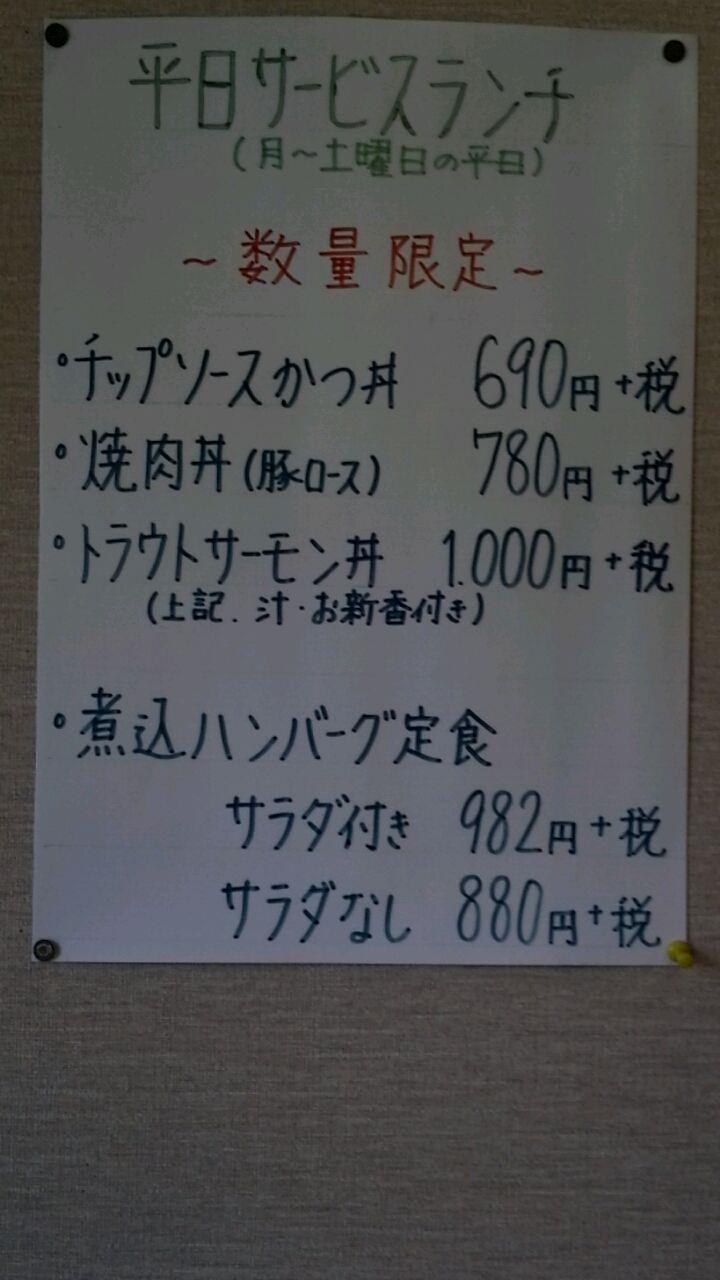 平日サービスランチ
(月～土曜日の平日)
～数量限定～
・チップソースかつ丼 690円+税
・焼肉丼(豚ロース) 780円+税
・トラウトサーモン丼 1.000円+税
(上記.汁・お新香付き)
・煮込ハンバーグ定食
サラダ付き 982円+税
サラダなし 880円+税